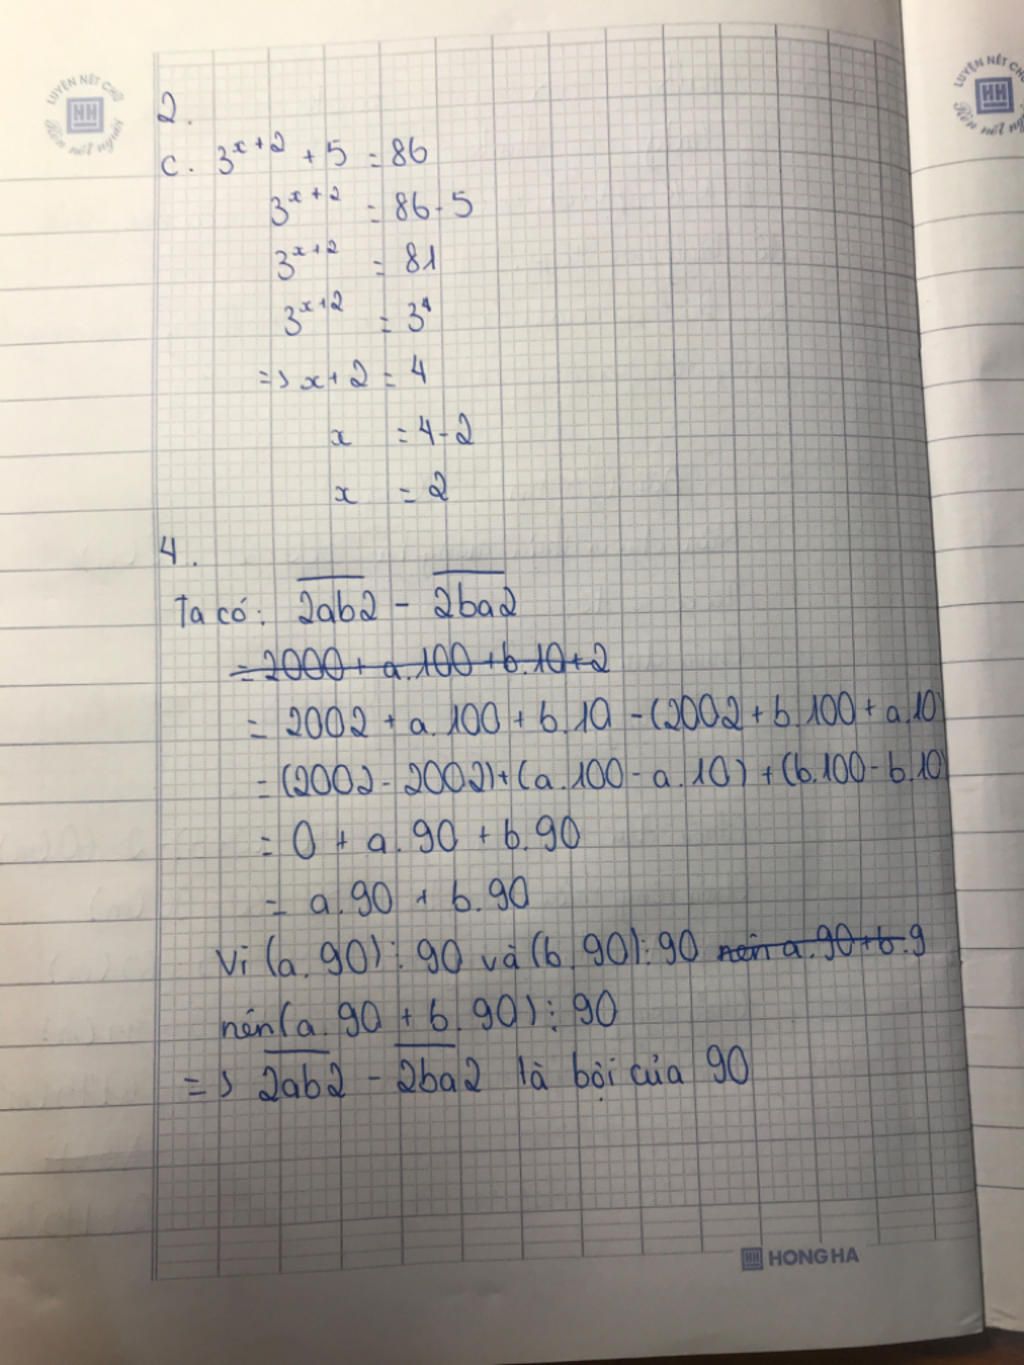 LUYỆN NÉT CHỮ
HH
Rèn nết người
LUYỆN NÉT CHỮ
HH
Rèn nết người
2.
c. 3^{x+2} + 5 = 86
3^{x+2} = 86 - 5
3^{x+2} = 81
3^{x+2} = 3^4
=> x + 2 = 4
x = 4 - 2
x = 2
4.
Ta có: \overline{2ab2} - \overline{2ba2}
= 2000 + a.100 + b.10 + 2
= 2002 + a.100 + b.10 - (2002 + b.100 + a.10)
= (2002 - 2002) + (a.100 - a.10) + (b.100 - b.10)
= 0 + a.90 + b.90
= a.90 + b.90
Vì (a.90) ⋮ 90 và (b.90) ⋮ 90 nên a.90 + b.9
nên (a.90 + b.90) ⋮ 90
=> \overline{2ab2} - \overline{2ba2} là bội của 90
HH HONG HA